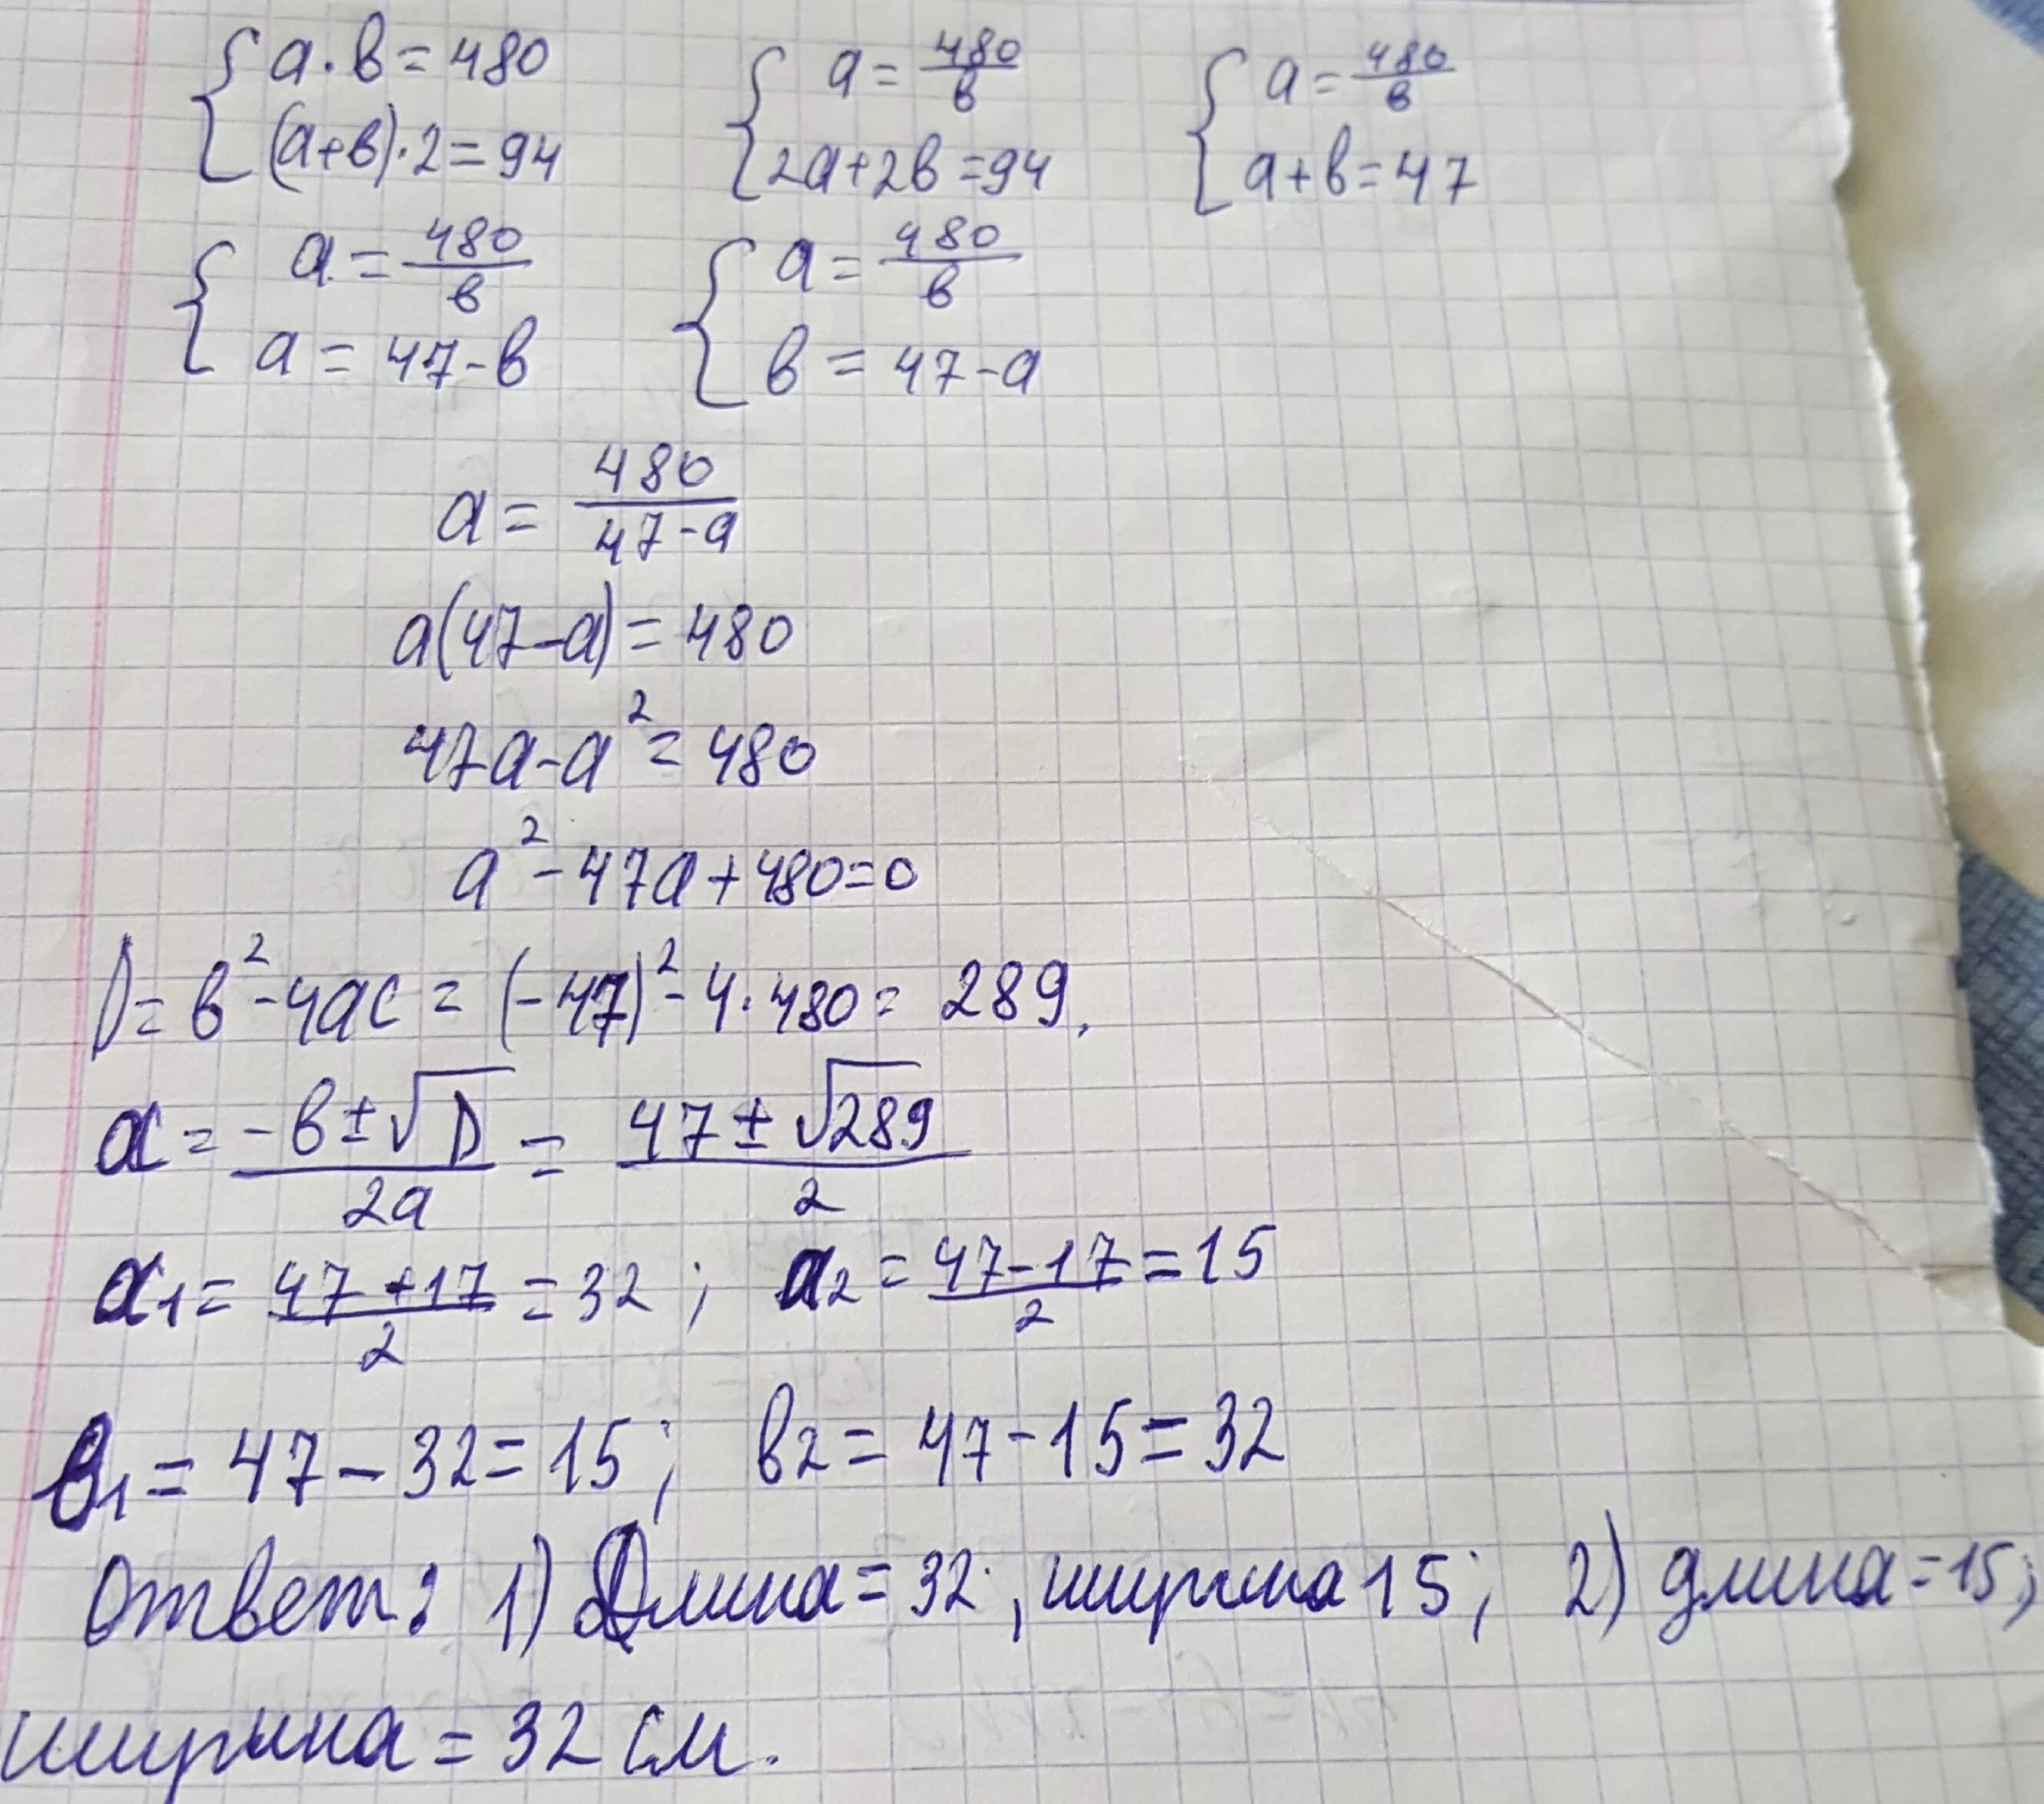 { a·в=480 { a=480/в { a=480/в
(a+в)·2=94 2a+2в=94 a+в=47
{ a=480/в { a=480/в
a=47-в в=47-a
a=480/(47-a)
a(47-a)=480
47a-a²=480
a²-47a+480=0
D=в²-4ac=(-47)²-4·480=289.
a=(-в±√D)/2a=(47±√289)/2
a₁=(47+17)/2=32; a₂=(47-17)/2=15
в₁=47-32=15; в₂=47-15=32
Ответ: 1) Длина=32, ширина 15; 2) длина=15;
ширина=32 см.